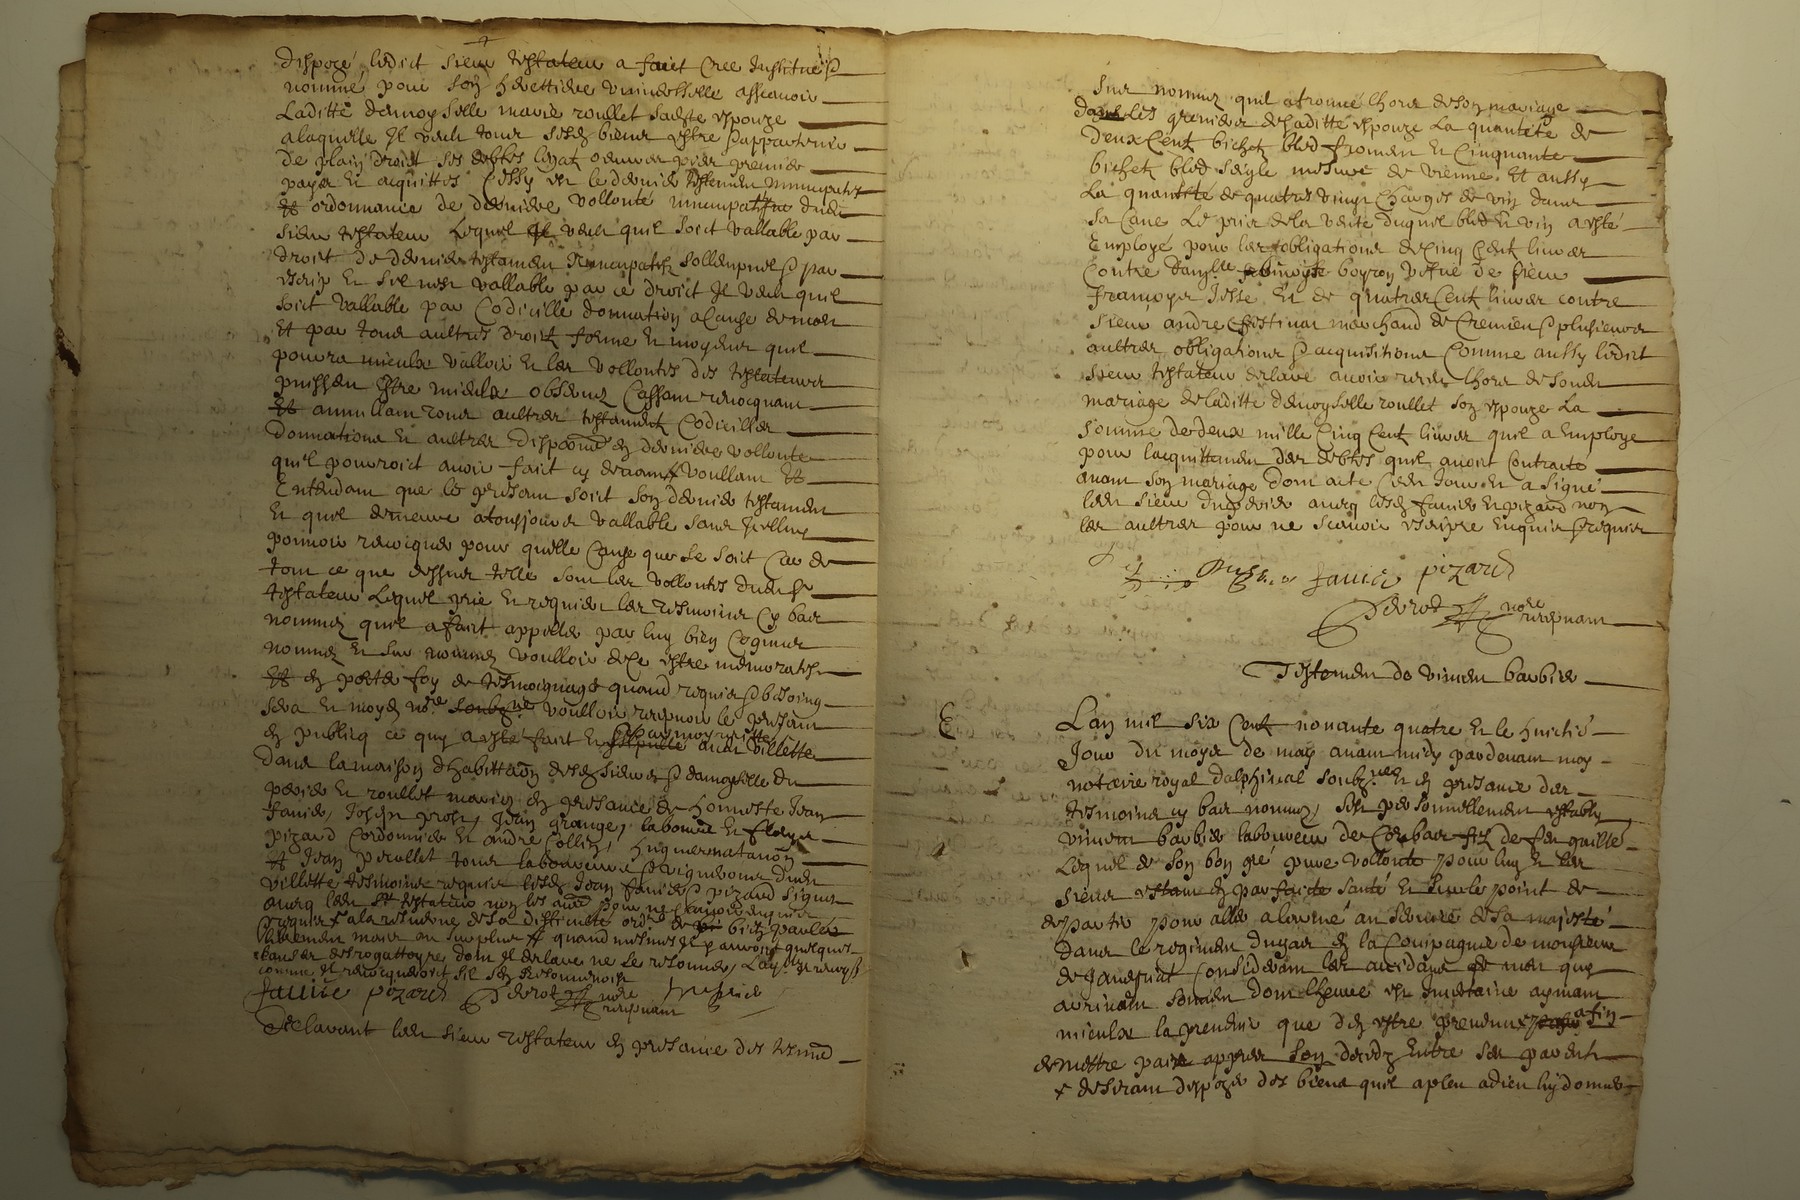 dispozé ledict sieur testateur a faict cree institué &
nommé pour son herettiere universselle asscavoir
Laditte demoyselle marie roullet sadite espouze
a laquelle Il veult tous sesdz biens estre & appartenir
de plain droict ses debtes legatz oeuvres pies premier
payes et acquittes Cessy est le dernier testement nuncupatif
et ordonnance de derniere vollonté nuncupatifve dudit
sieur testateur Lequel Il veult quil soict vallable par
droict de dernier testament Nuncupatif sollempnel & par
escrip et sil nest vallable par ce droict Il veult quil
soict vallable par Codicille donnation a Cause de mort
et par tous aultres droict forme et moyens quil
pourra mieulx valloir et les vollontes des testateurs
puissent estre mieulx observez Cassant revocquant
et annullant tous aultres testamentz Codicilles
donnations et aultres dispoons de derniere vollonte
quil pourroict avoir faict cy devant voullant et
Entendant que le presant soict son dernier testament
et quil demeure a tousjours vallable sans Icelluy
pouvoir revocquer pour quelle Cause que se soict Car de
tout ce que dessus telle sont les vollontes dudit sr
testateur Lequel prie et requier les tesmoins Cy bas
nommez quil a faict appelles par luy bien Cogneus
nommez et sur nommez voulloir de Ce estre memoratifs
et en porter foy de tesmoignage quand requier & besoing
sera et moy no.re soubz.ne voulloir recepvoir le presant
en publicq ce quy a esté faict et par moy recitte aud villette
dans la maison dhabittaon desdz sieur & damoyselle du
perier et roullet maries en presance de honneste Jean
favier, Joseph , Jean grange, laboureur et
pizard Cordonnier et andré Collin,
et Jean perollet tous laboureurs & vignerons dudit
villette tesmoins requis lesdz Jean favier & pizard signes
avecq ledit sr testateur non les aues pour ne scavoir enquis
& requis & a la reserve de sa
librement mais au surplus quand mesmes Il y auroict quelques
clauses desrogattoyre dont Il declare ne se resouvenir,
comme Il revocqueroit sil sen resouvenoit
favie pizard Perrot no.re recepvant
Declarant ledit sieur testateur en presance des tesmoins
sus nommez quil a trouvé lhors de son mariage
dans les greniers de saditte espouze la quantité de
deux Cent bichetz bled froment et Cinquante
bichetz bled seigle mesure de vienne Et aussy
La quantité de quatre vingt Charges de vin dans
sa Cave Le prix de la vente duquel bled et vin a esté
Employé pour les obligations de Cinq Cent livres
Contre damlle boyron vefve de sieur
françoys Josse Et de quatre Cent livres contre
sieur andre Chistinat marchand de Cremieu & plusieurs
aultres obligations & acquisitions Comme aussy ledict
sieur testateur declare avoir receu lhors de sondit
mariage de laditte demoyselle roullet son espouze La
somme de deux mille Cinq Cent livres quil a Employe
pour lacquittement des debtes quil avoit Contracté
avant son mariage dont acte Cedit Jour et a signé
ledit sieur duperier avecq lesdz favier et pizard non
les aultres pour ne scavoir escripre enquis & requis
favie pizard
Perrot no.re recepvant
Testement de vincent barbier
Lan mil six Cent nonante quatre et le huictie
Jour du moys de may avant midy pardevant moy
notaire royal dalphinal soubz.ne et en presance des
tesmoins cy bas nommez, sest personnellement estably
vincent barbier laboureur de fils de feu
Lequel de son bon gré pure vollonte pour luy et les
siens estant en parfaicte santé et sur le point de
departir pour aller a larmé au service de sa majesté
dans le regiment en la Compagnie de monsieur
de Considerant les accidans de mort que
arrivent souvent dont lheure est incertaine aymant
mieulx la prendre que den estre prevenu afin
de mettre paix appres son deceds entre ses parents
& desirant dispozer des biens quil a pleu a dieu luy donner